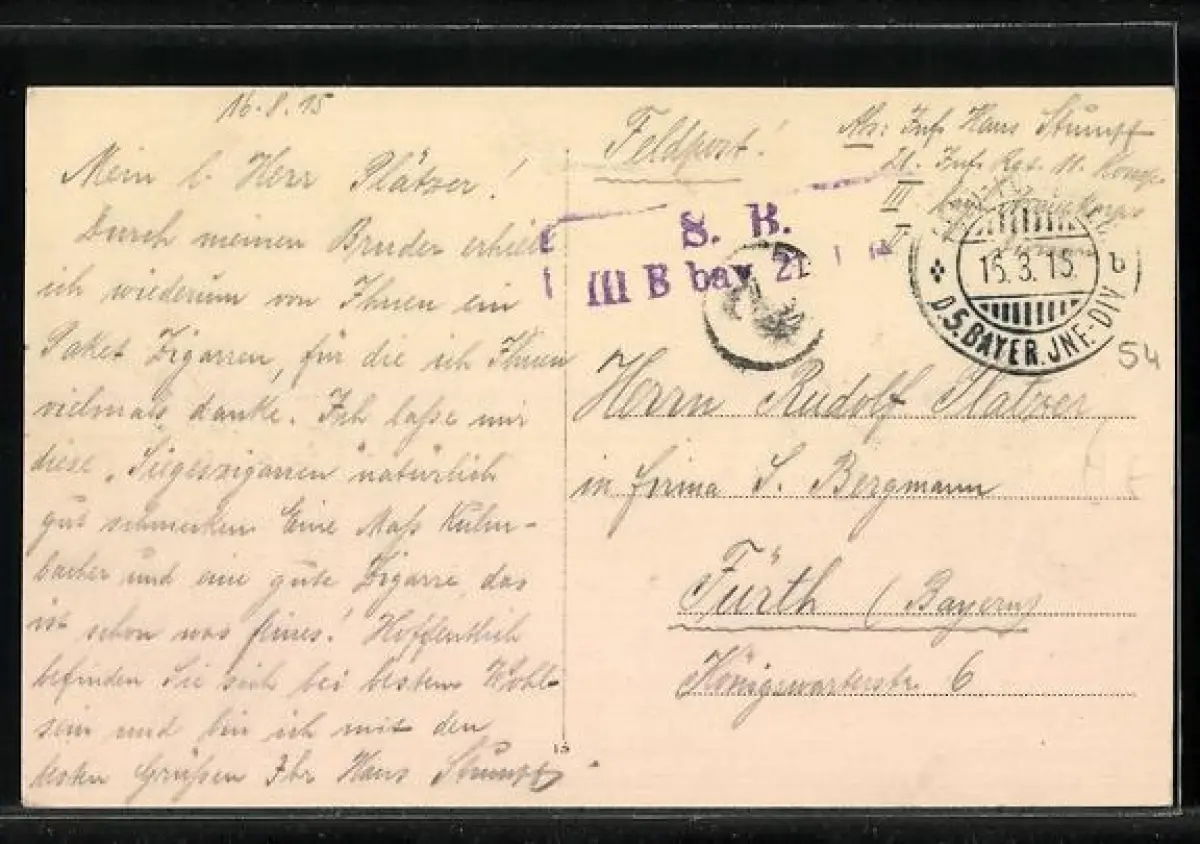 16.8.15
Mein l. Herr Plätzer!
Durch meinen Bruder erhielt
ich wiederum von Ihnen ein
Paket Zigarren, für die ich Ihnen
vielmals danke. Ich laße mir
diese „Siegeszigarren" natürlich
gut schmecken. Eine Maß Kulm-
bacher und eine gute Zigarre, das
ist schon was feines! Hoffentlich
befinden Sie sich bei bestem Wohl-
sein und bin ich mit den
besten Grüßen Ihr Hans Stumpf.
Feldpost!
Abs: Inf. Hans Stumpf
21. Inf. Rgt. 11. Komp.
III bayr. Armeekorps
S. B.
III B bay 21
15.3.15
b
D.5.BAYER.JNF.-DIV
54
Herrn Rudolf Platzer
in Firma S. Bergmann
Fürth (Bayern)
Königswarterstr. 6
13